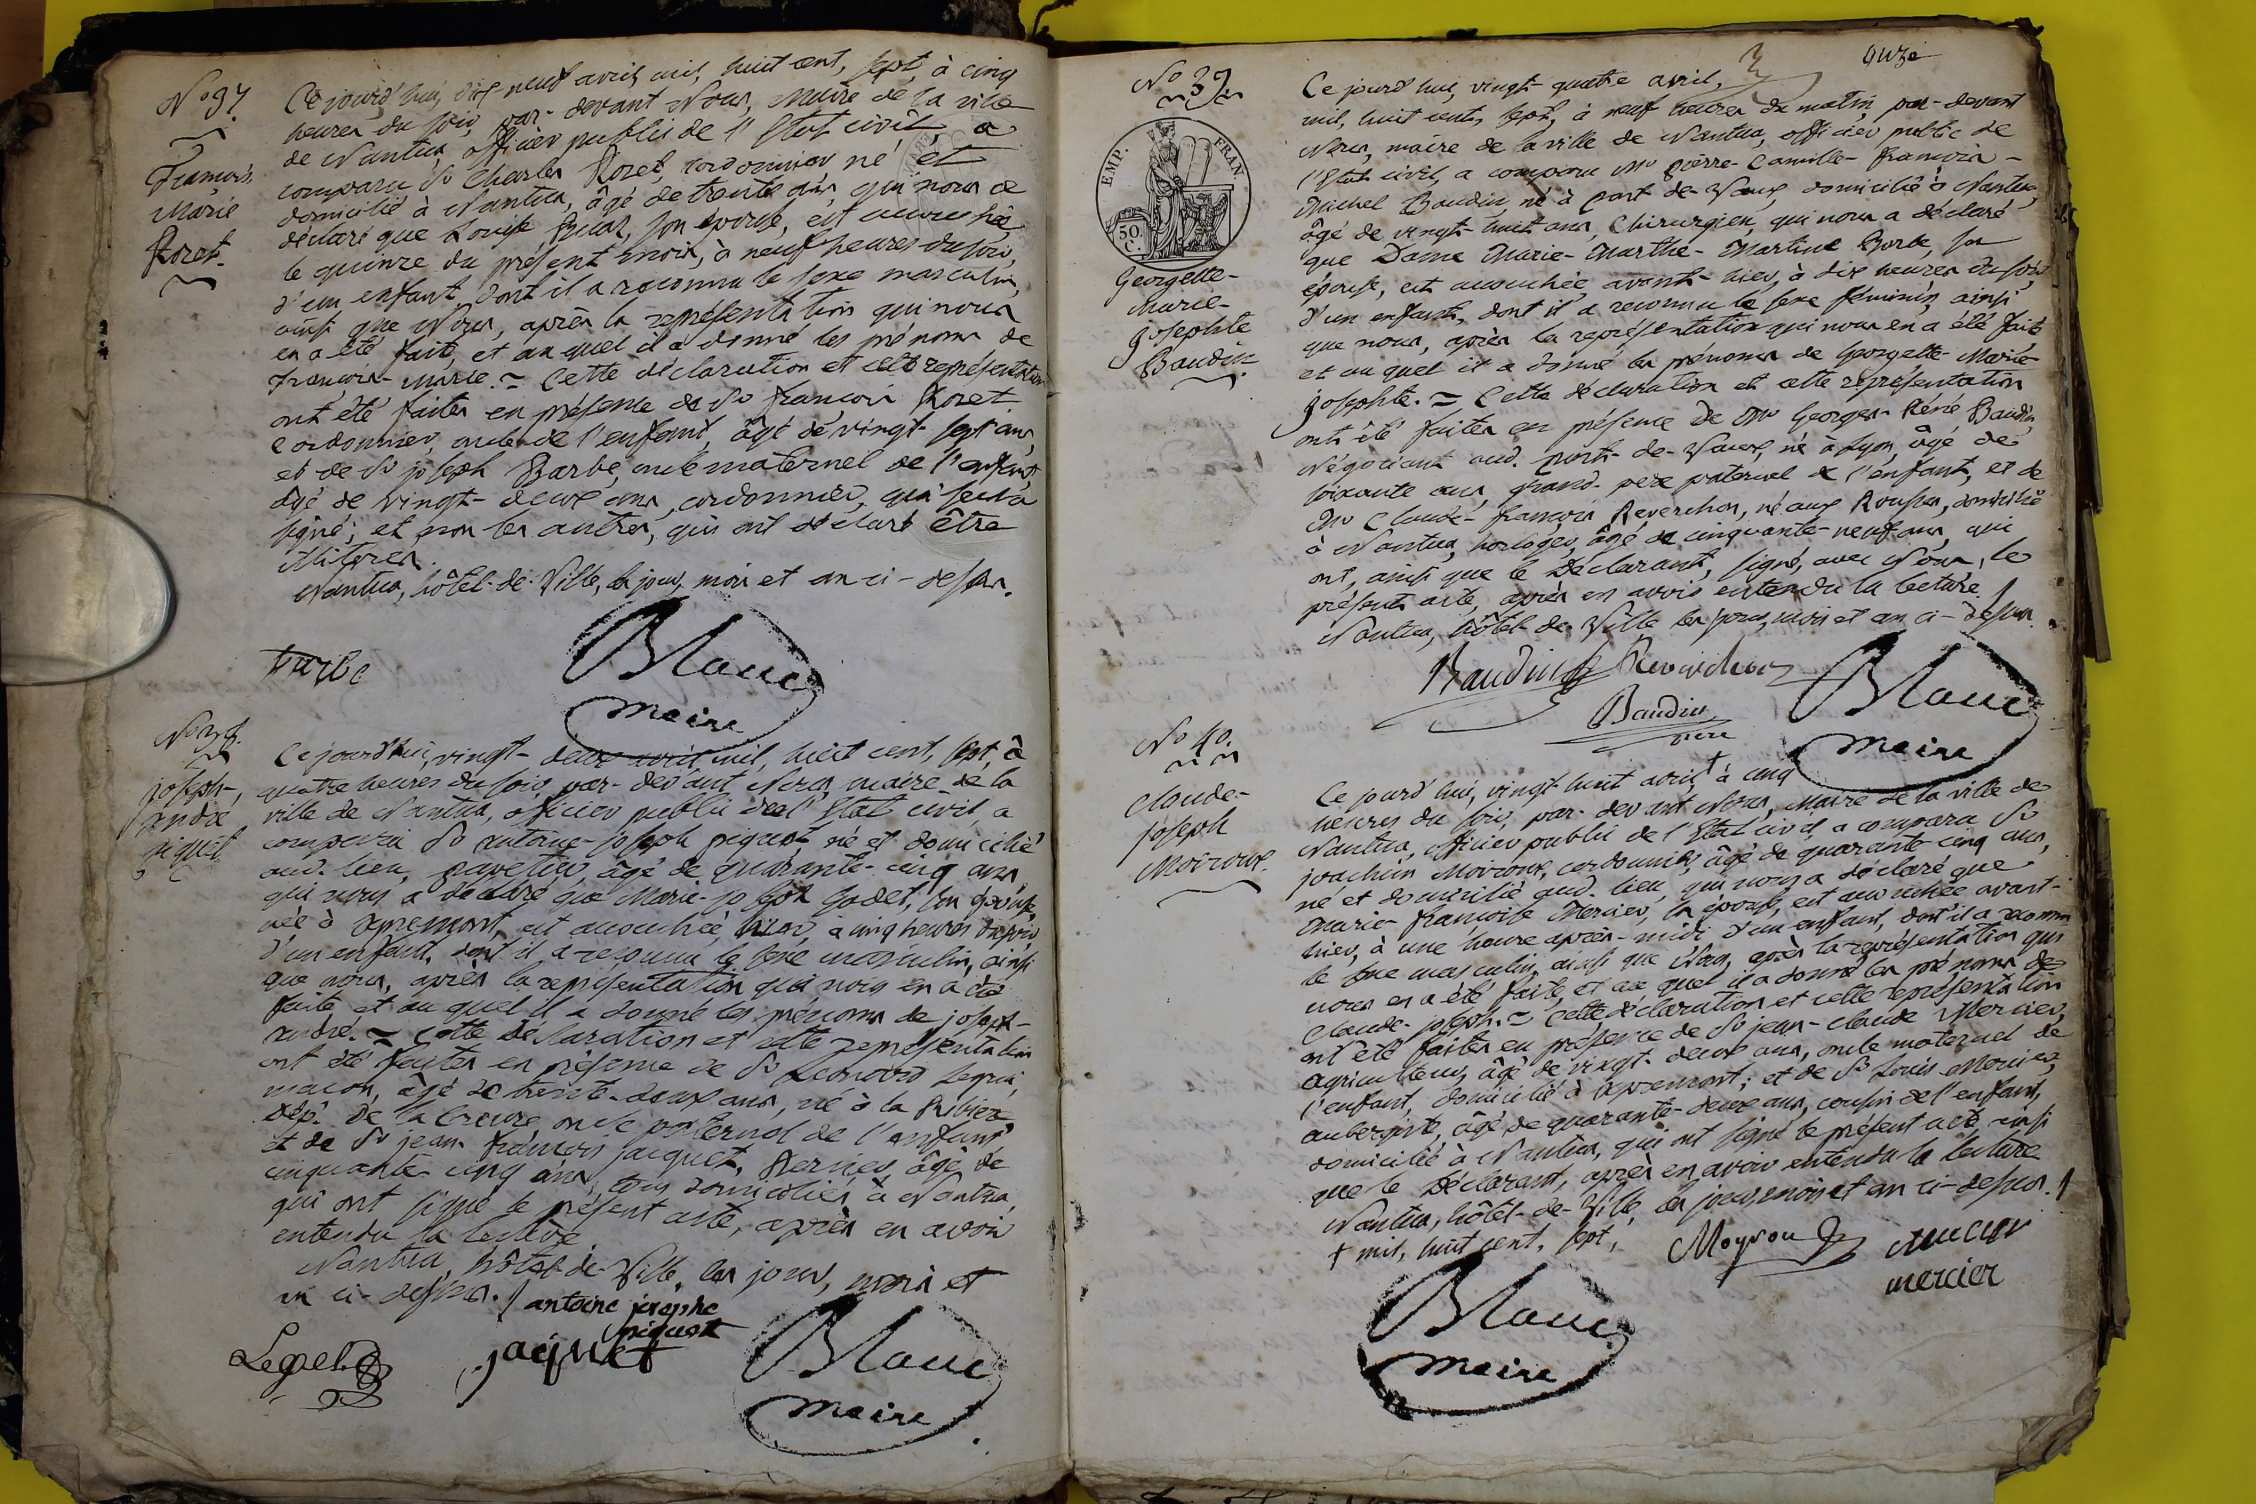 No 37.
François
Marie
Roret.
Ce jourd'hui, dix neuf avril, mil, huit cent, sept, à cinq
heures du soir, par-devant Nous, Maire de la ville
de Nantua, officier public de l'Etat civil, a
comparu Sr Charles Roret, cordonnier, né et
domicilié à Nantua, âgé de trente ans, qui nous a
déclaré que Louise son épouse, est accouchée
le quinze du présent mois, à neuf heures du soir,
d'un enfant dont il a reconnu le sexe masculin,
ainsi que Nous, après la représentation qui nous
en a été faite, et au quel il a donné les prénoms de
françois-marie. = Cette déclaration et cette représentation
ont été faites en présence de Sr françois Roret
cordonnier, oncle de l'enfant, âgé de vingt-sept ans,
et de Sr joseph Barbe, oncle maternel de l'enfant,
âgé de vingt-deux ans, cordonnier, qui seul a
signé; et non les autres, qui ont déclaré être
illitérés.
Nantua, hôtel-de-Ville, les jour, mois et an ci-dessus.
Barbe
Blanc
maire
No 38.
joseph-
andré
piquet
Ce jourd'hui, vingt-deux avril mil, huit cent, sept, à
quatre heures du soir, par-devant Nous, maire de la
ville de Nantua, officier public de l'Etat civil, a
comparu Sr antoine-joseph piquet, né et domicilié
aud. lieu, âgé de quarante-cinq ans,
qui nous a déclaré que Marie-joseph Godet, son épouse,
née à Apremont, est accouchée hier, à cinq heures du soir
d'un enfant, dont il a reconnu le sexe masculin, ainsi
que nous, après la représentation qui nous en a été
faite et au quel il a donné les prénoms de joseph-
andré. = Cette déclaration et cette représentation
ont été faites en présence de Sr Léonard
maçon, âgé de trente-deux ans, né à la
dép. de la Creuse, oncle paternel de l'enfant
et de Sr jean-françois jacquet, âgé de
cinquante-cinq ans, tous domiciliés à Nantua,
qui ont signé le présent acte, après en avoir
entendu la lecture.
Nantua, hôtel-de-Ville, les jour, mois et
an ci-dessus.
antoine josephe
piquet
jaquet
Blanc
maire
onze
No 39.
EMP. FRAN
50.
C.
Georgette-
Marie-
josephte
Baudin.
Ce jourd'hui, vingt-quatre avril,
mil, huit cent, sept, à neuf heures du matin, par-devant
Nous, maire de la ville de Nantua, officier public de
l'Etat civil, a comparu Mr pierre-Camille-françois-
Michel Baudin, né à pont de Vaux, domicilié à Nantua,
âgé de vingt-huit ans, Chirurgien, qui nous a déclaré
que Dame Marie-Marthe-Martine Borbe, son
épouse, est accouchée, avant-hier, à dix heures du soir
d'un enfant, dont il a reconnu le sexe féminin, ainsi
que nous, après la représentation qui nous en a été faite
et au quel il a donné les prénoms de Georgette-Marie-
josephte. = Cette déclaration et cette représentation
ont été faites en présence de Mr Georges-Réné Baudin,
Négociant aud. pont-de-Vaux, né à Lyon, âgé de
soixante ans, grand-pere paternel de l'enfant, et de
Mr Claude-françois Reverchon, né aux Rousses, domicilié
à Nantua, horloger, âgé de cinquante-neuf ans, qui
ont, ainsi que le Déclarant, signé, avec Nous, le
présent acte, après en avoir entendu la lecture.
Nantua, hôtel-de-Ville les jour, mois et an ci-dessus.
Baudin Reverchon
Baudin
père
Blanc
maire
No 40.
Claude-
joseph
Moiroux.
Ce jourd'hui, vingt-huit avril † à cinq
heures du soir, par-devant Nous, Maire de la ville de
Nantua, officier public de l'Etat civil, a comparu Sr
joachim Moiroux, cordonnier, âgé de quarante-cinq ans,
né et domicilié aud. lieu, qui nous a déclaré que
Marie-françoise Mercier, son épouse, est accouchée avant-
hier, à une heure après-midi d'un enfant, dont il a reconnu
le sexe masculin, ainsi que Nous, après la représentation qui
nous en a été faite, et au quel il a donné les prénoms de
Claude-joseph. = Cette déclaration et cette représentation
ont été faites en présence de Sr jean-claude Mercier,
agriculteur, âgé de vingt-deux ans, oncle maternel de
l'enfant, domicilié à Apremont; et de Sr Louis Mercier,
aubergiste, âgé de quarante-deux ans, cousin de l'enfant,
domicilié à Nantua, qui ont signé le présent acte, ainsi
que le Déclarant, après en avoir entendu la lecture
Nantua, hôtel-de-Ville, les jour, mois et an ci-dessus.
† mil, huit cent, sept,
Moyroux
mercier
mercier
Blanc
maire